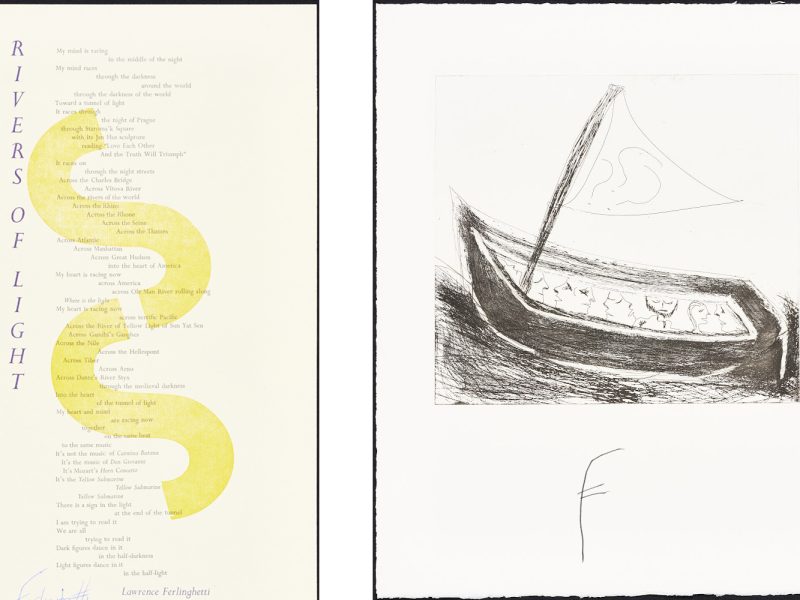 RIVERS OF LIGHT
My mind is racing
in the middle of the night
My mind races
through the darkness
around the world
through the darkness of the world
Toward a tunnel of light
It races through
the night of Prague
through Staromák Square
with its Jan Hus sculpture
reading "Love Each Other
And the Truth Will Triumph"
It races on
through the night streets
Across the Charles Bridge
Across Vltava River
Across the rivers of the world
Across the Rhine
Across the Rhone
Across the Seine
Across the Thames
Across Atlantic
Across Manhattan
Across Great Hudson
into the heart of America
My heart is racing now
across America
across Ole Man River rolling along
Where is the light
My heart is racing now
across terrific Pacific
Across the River of Yellow Light of Sun Yat Sen
Across Gandhi's Ganghes
Across the Nile
Across the Hellespont
Across Tiber
Across Arno
Across Dante's River Styx
through the medieval darkness
Into the heart
of the tunnel of light
My heart and mind
are racing now
together
on the same beat
to the same music
It's not the music of Carmina Burana
It's the music of Don Giovanni
It's Mozart's Horn Concerto
It's the Yellow Submarine
Yellow Submarine
Yellow Submarine
There is a sign in the light
at the end of the tunnel
I am trying to read it
We are all
trying to read it
Dark figures dance in it
in the half-darkness
Light figures dance in it
in the half-light
Lawrence Ferlinghetti
F